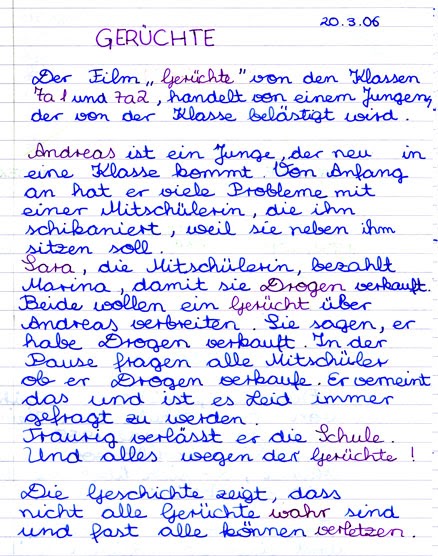 20.3.06
GERÜCHTE
Der Film „Gerüchte" von den Klassen
7a1 und 7a2, handelt von einem Jungen,
der von der Klasse belästigt wird.
Andreas ist ein Junge, der neu in
eine Klasse kommt. Von Anfang
an hat er viele Probleme mit
einer Mitschülerin, die ihn
schikaniert, weil sie neben ihm
sitzen soll.
Sara, die Mitschülerin, bezahlt
Marina, damit sie Drogen verkauft.
Beide wollen ein Gerücht über
Andreas verbreiten. Sie sagen, er
habe Drogen verkauft. In der
Pause fragen alle Mitschüler
ob er Drogen verkaufe. Er verneint
das und ist es Leid immer
gefragt zu werden.
Traurig verlässt er die Schule.
Und alles wegen der Gerüchte!
Die Geschichte zeigt, dass
nicht alle Gerüchte wahr sind
und fast alle können verletzen.